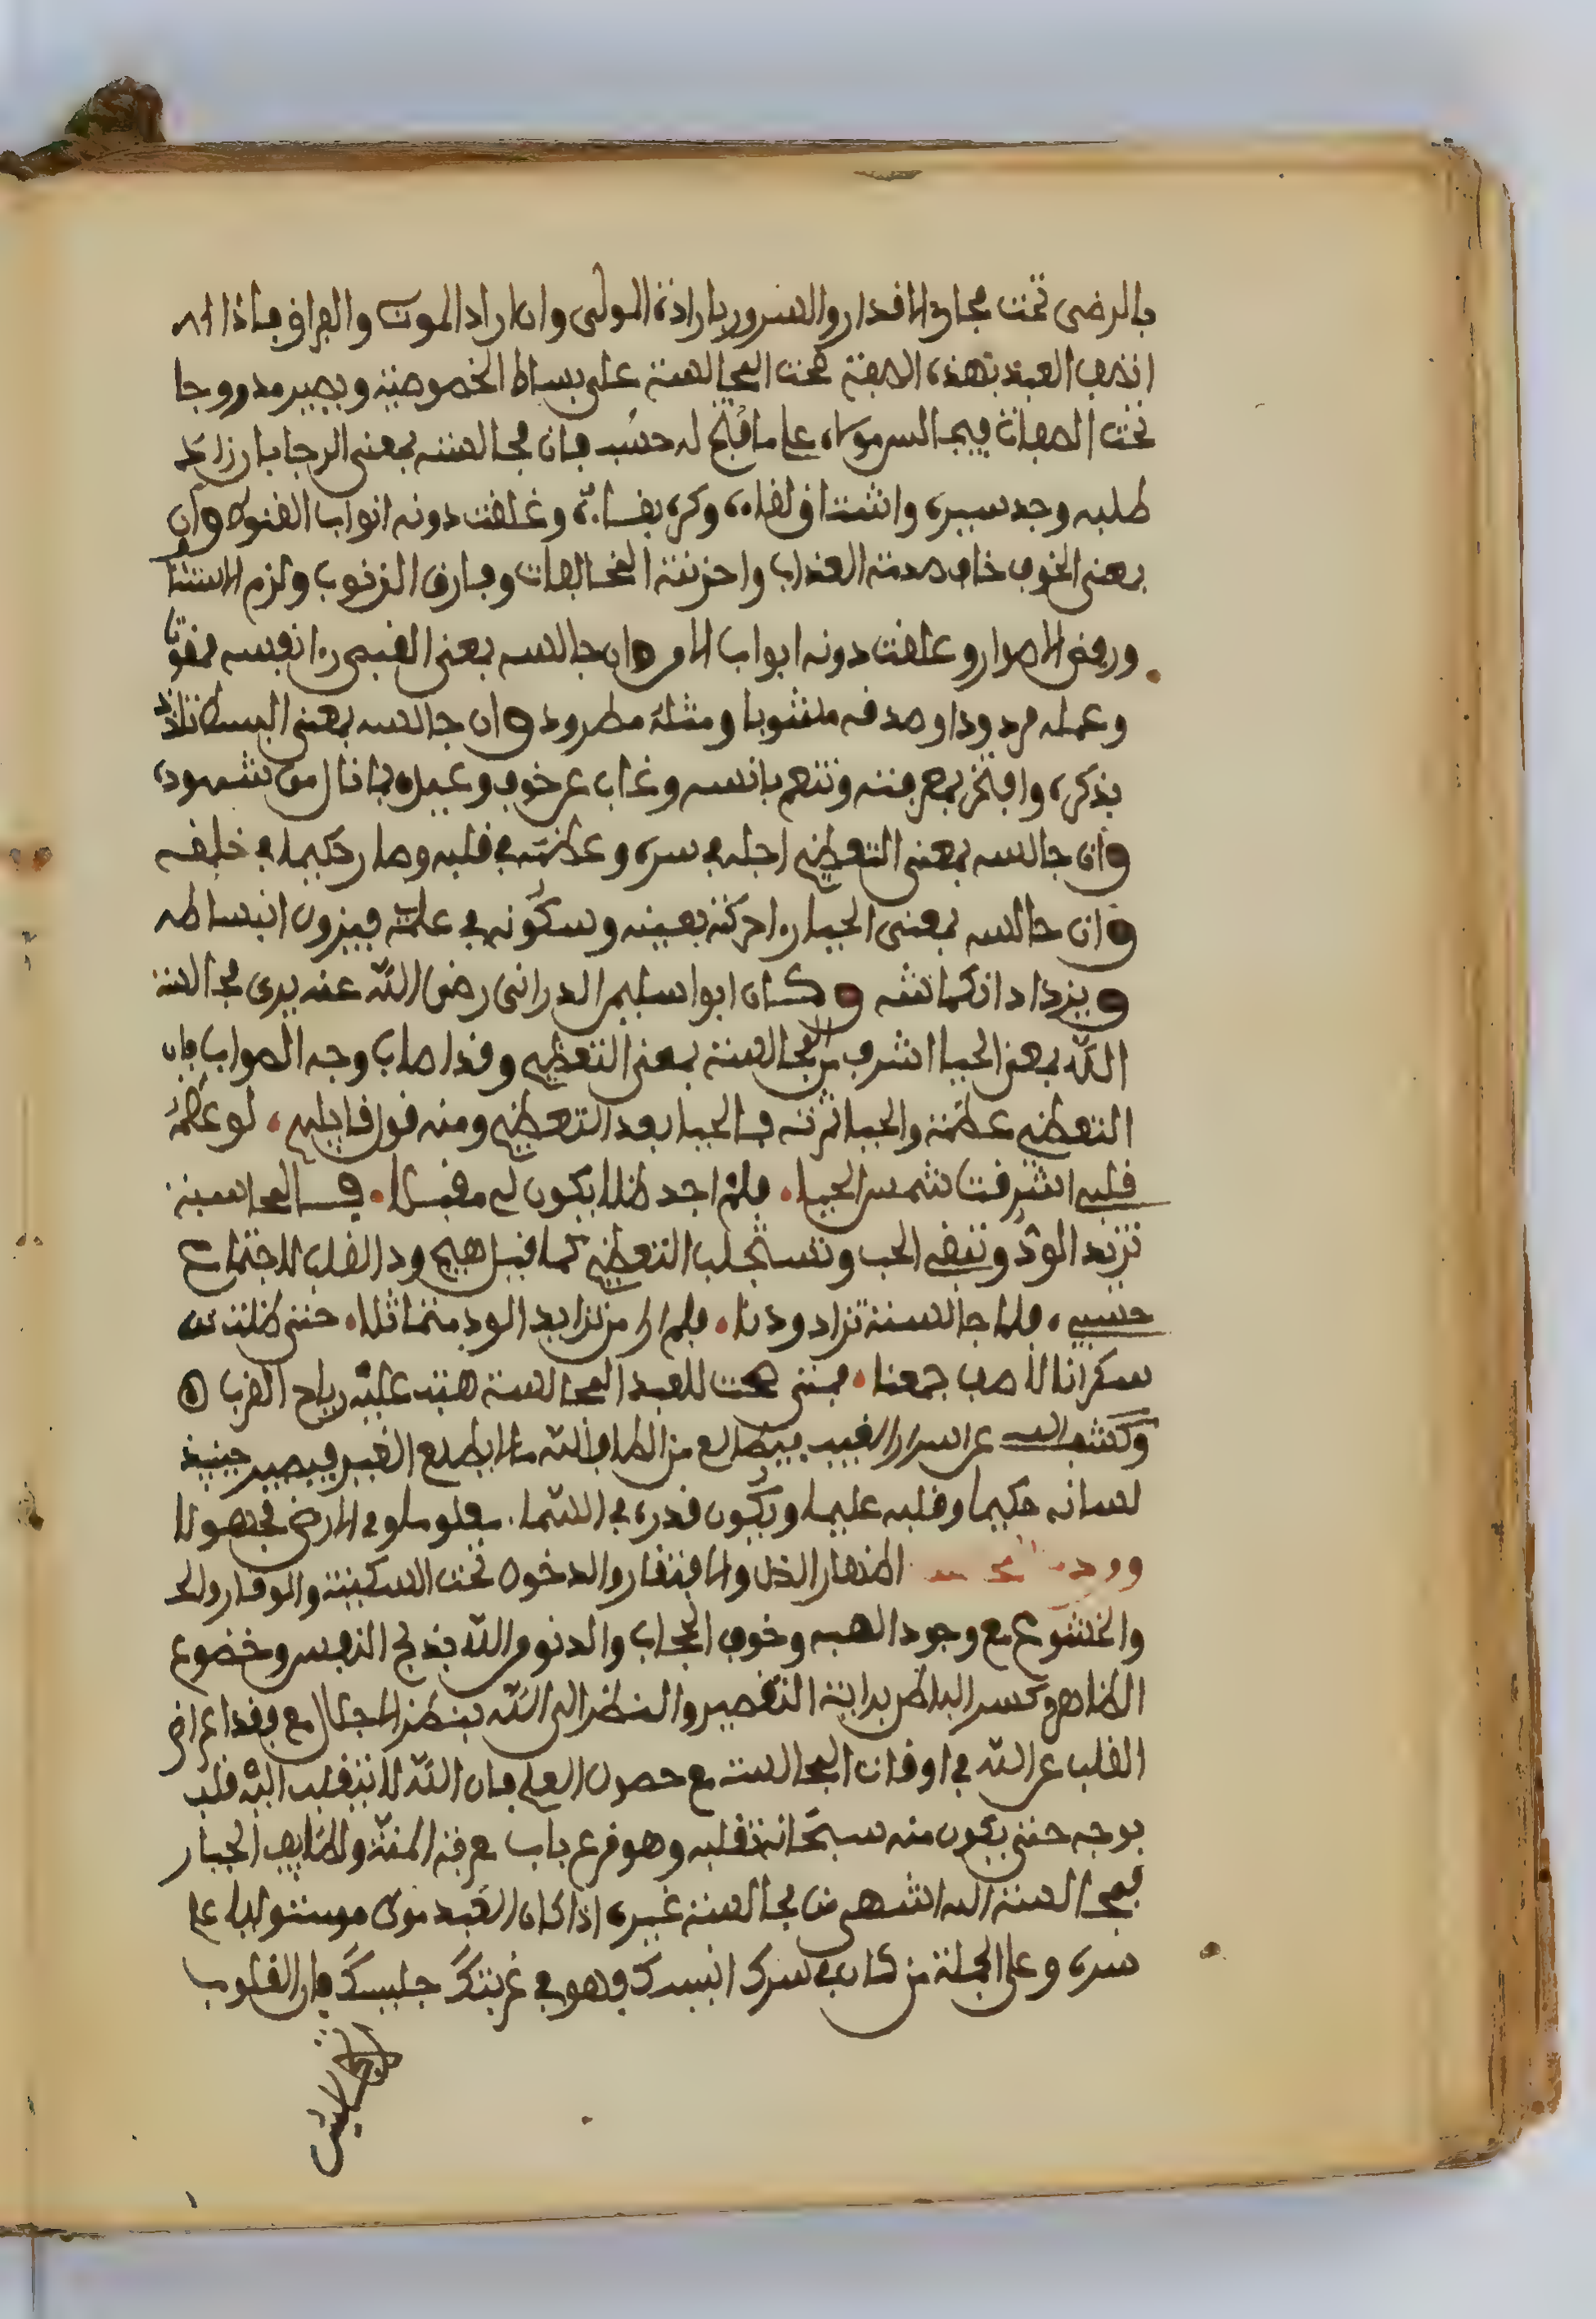 بالرضى تحت مجاري الاقدار والسرور بارادة المولى وان اراد الموت والفراق فاذا
اتصف العبد بهذه الصفة صحت المجالسة على بساط الخصوصية ويصير مدروجا
تحت الصفات فيجالس مولاه على ما فتح له حسب فان مجالسته بمعنى الرجا بارزا
طلبه وجد سيره واشتاق لقاه وكره بقاه وغلقت دونه ابواب القنوط وان
بمعنى الخوف خاف صدمة العذاب واحزنته المخالفات وفارق الذنوب ولزم
ورفض الاصوار وغلقت دونه ابواب الامن وان جالسه بمعنى القبض را نفسه ممقوتا
وعمله مردودا وصدقه مشوبا ومثله مطرود وان جالسه بمعنى البسط تلذذ
بذكره وافتخر بمعرفته وتنعم بانسه وغاب عن خوف وعيده بما نال من شهوده
وان جالسه بمعنى التعظيم اجله في سره وعظمه في قلبه وصار حكيما في خلقه
وان جالسه بمعنى الحيا را حركته بعينه وسكونه في علمه فيزول انبساطه
ويزداد انكماشه وكان ابوا سليمن الدراني رضي الله عنه يرى مجالسة
الله بمعنى الحيا اشرف من المجالسة بمعنى التعظيم وقد اصاب وجه الصواب فان
التعظيم عظمته والحيا ثمرته فالحيا بعد التعظيم ومنه قول قايلهم لو عظمه
قلبي اشرقت شمس الحيا فلم اجد ظلا يكون لي مقيلا فالمجالسة
تزيد الود وتنقي الحب وتستجلب التعظيم كما قيل هيج ود القلب للاجتماع
حسبي فلما جالسته تزاد ودنا فلم ار من تزايد الود متماثلا حتى ظننت
سكرانا لاصب جمعنا فمتى صحت للعبد المجالسة هبت عليه رياح القرب
وكشف له عن اسرار الغيب فيطالع من الطاف الله ما لا يطلع الغير فيصير حينيذ
لسانه حكيما وقلبه عليما ويكون قدره في السما معلوما وفي الارض مجهولا
اظهار الذل والافتقار والدخول تحت السكينة والوقار
والخشوع مع وجود الهيبه وخوف الحجاب والدنو من الله بذلة النفس وخضوع
الظاهر وكسر الباطن برايية التقصير والنظر الى الله بنظر الاجلال مع فقد اعراض
القلب عن الله في اوقات المجالسة مع حصول العلم فان الله لا يتقلب اليه قلب
بوجه حتى يكون منه سبحانه تقلبه وهو قرع باب معرفة المنة ولطايف الجبار
فمجالسة الله اشهى من مجالسة غيره اذا كان العبد مستوليا على
سره وعلى الجملة من كان في سرك انيسك فهو في غربتك جليسك فان القلوب